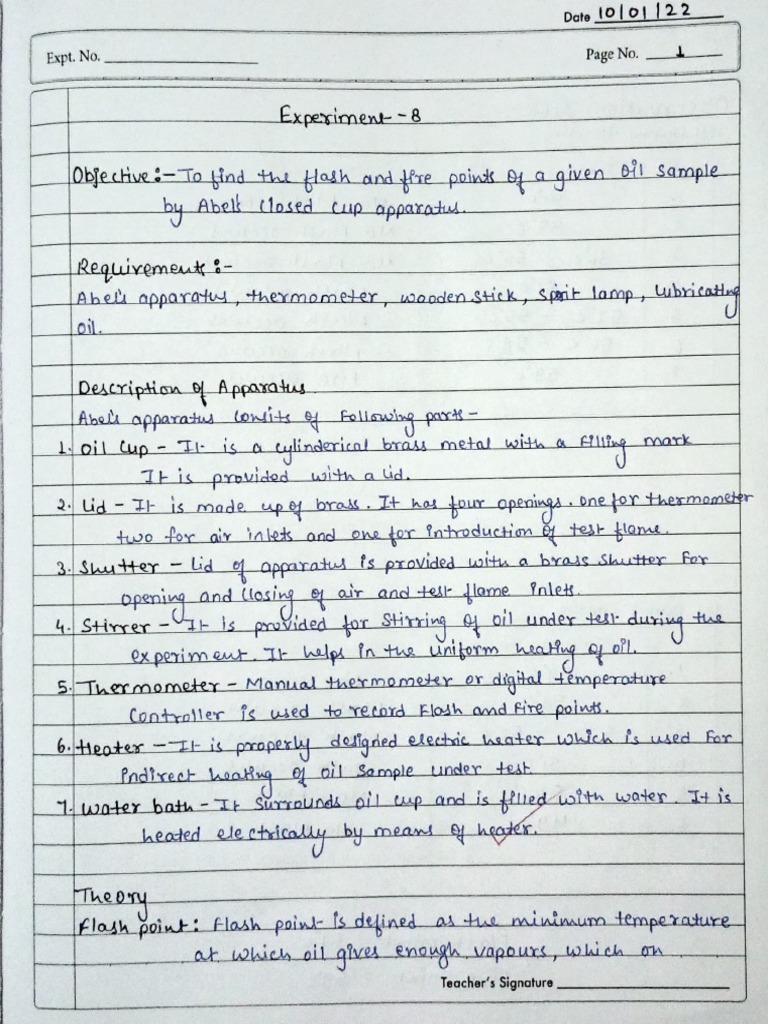 Date 10/01/22
Expt. No.
Page No. 1
Experiment - 8
Objective :- To find the flash and fire points of a given oil sample
by Abel's closed cup apparatus.
Requirements :-
Abel's apparatus, thermometer, wooden stick, sprit lamp, lubricating
oil.
Description of Apparatus
Abel's apparatus consits of Following parts -
1. Oil Cup - It is a cylinderical brass metal with a filling mark
It is provided with a lid.
2. Lid - It is made up of brass. It has four openings. one for thermometer
two for air inlets and one for introduction of test flame.
3. Shutter - Lid of apparatus is provided with a brass shutter for
opening and closing of air and test flame inlets.
4. Stirrer - It is provided for stirring of oil under test during the
experiment. It helps in the uniform heating of oil.
5. Thermometer - Manual thermometer or digital temperature
controller is used to record flash and fire points.
6. Heater - It is properly designed electric heater which is used for
indirect heating of oil sample under test.
7. Water bath - It surrounds oil cup and is filled with water. It is
heated electrically by means of heater.
Theory
Flash point : Flash point is defined as the minimum temperature
at which oil gives enough vapours, which on
Teacher's Signature